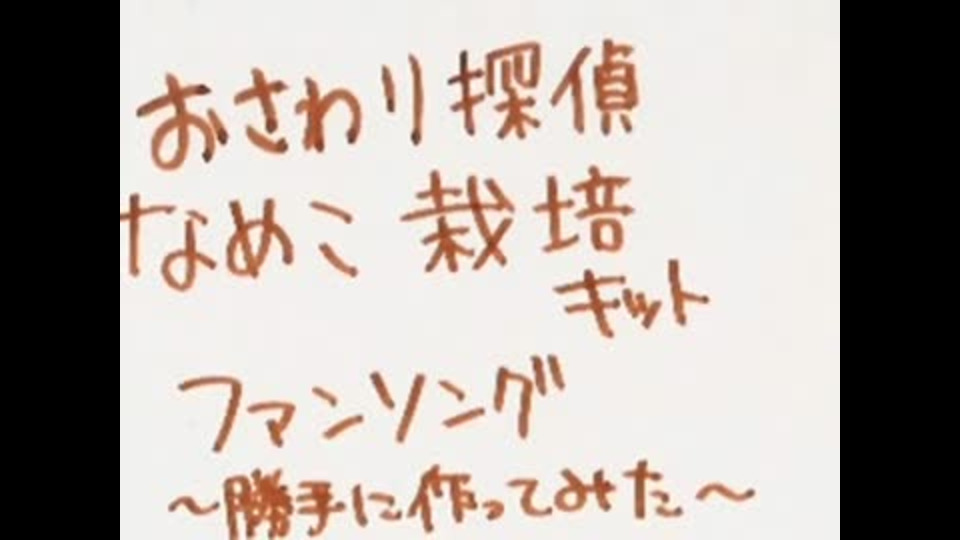 おさわり探偵
なめこ栽培
キット
ファンソング
～勝手に作ってみた～